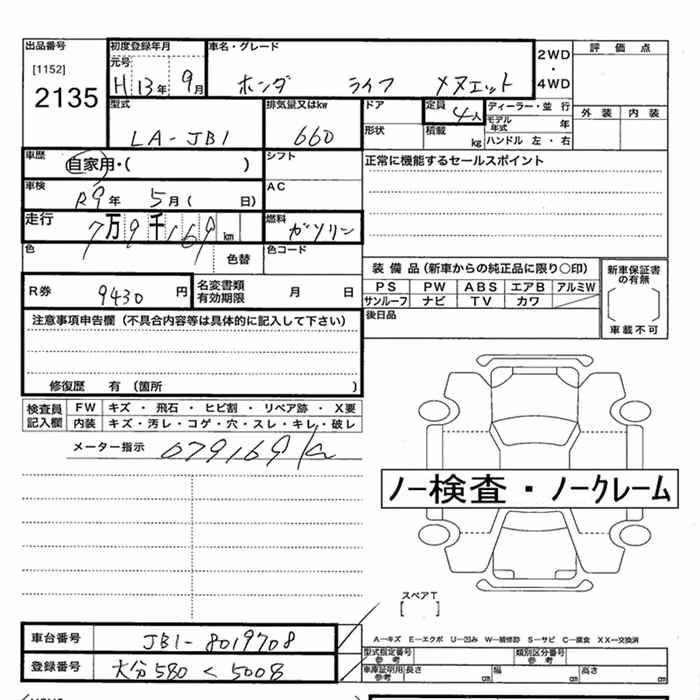 出品番号 初度登録年月 車名・グレード 2WD・4WD 評価点
[1152] 元号
2135 H 13年 9月 ホンダ ライフ メヌエット
型式 排気量又はkw ドア 定員 4人 ディーラー・並行 外装 内装
LA-JB1 660 形状 積載 kg モデル年式 年
ハンドル 左・右
車歴 自家用・( ) シフト 正常に機能するセールスポイント
車検 R9年 5月( 日) AC
走行 7万9千169km 燃料 ガソリン
色 色替 色コード
装備品(新車からの純正品に限り○印) 新車保証書の有無
R券 9430円 名変書類有効期限 月 日 PS PW ABS エアB アルミW
サンルーフ ナビ TV カワ
注意事項申告欄(不具合内容等は具体的に記入して下さい) 後日品 車載不可
修復歴 有(箇所 )
検査員記入欄 FW キズ・飛石・ヒビ割・リペア跡・X要
内装 キズ・汚レ・コゲ・穴・スレ・キレ・破レ
メーター指示 079169km
ノー検査・ノークレーム
スペアT
[ ]
車台番号 JB1-8019708 A-キズ E-エクボ U-凹み W-補修跡 S-サビ C-腐食 XX-交換済
型式指定番号 参考 類別区分番号 参考
登録番号 大分580 く 5008 車庫証明参考 長さ cm 幅 cm 高さ cm